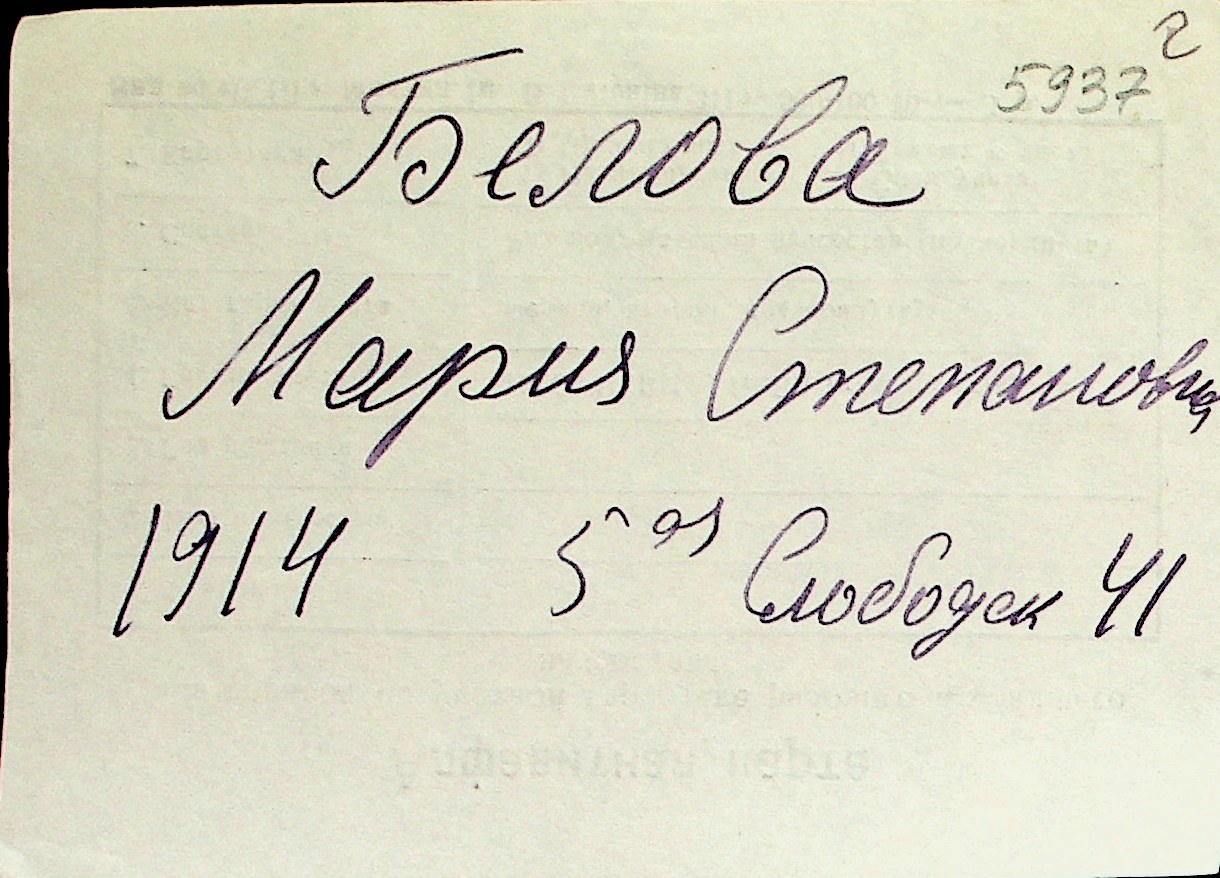 5937 г
Белова
Мария Степановна
1914 5ая Слободск 41